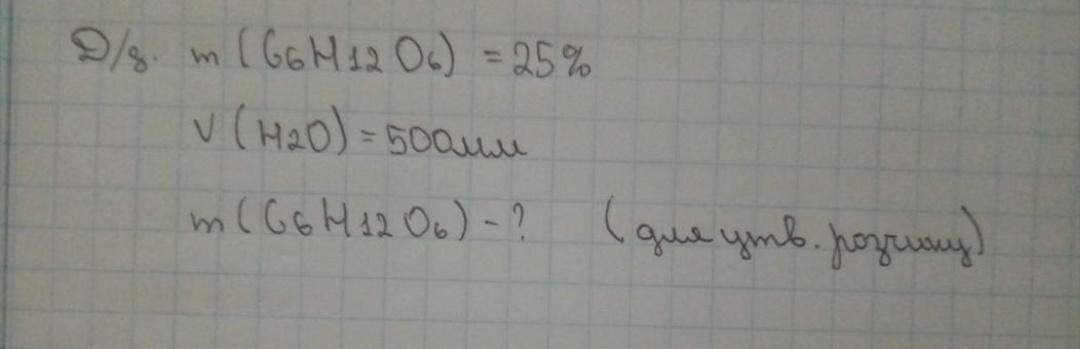 Д/з. m (C6H12O6) = 25%
V (H2O) = 500мл
m (C6H12O6) - ? (для утв. розчину)